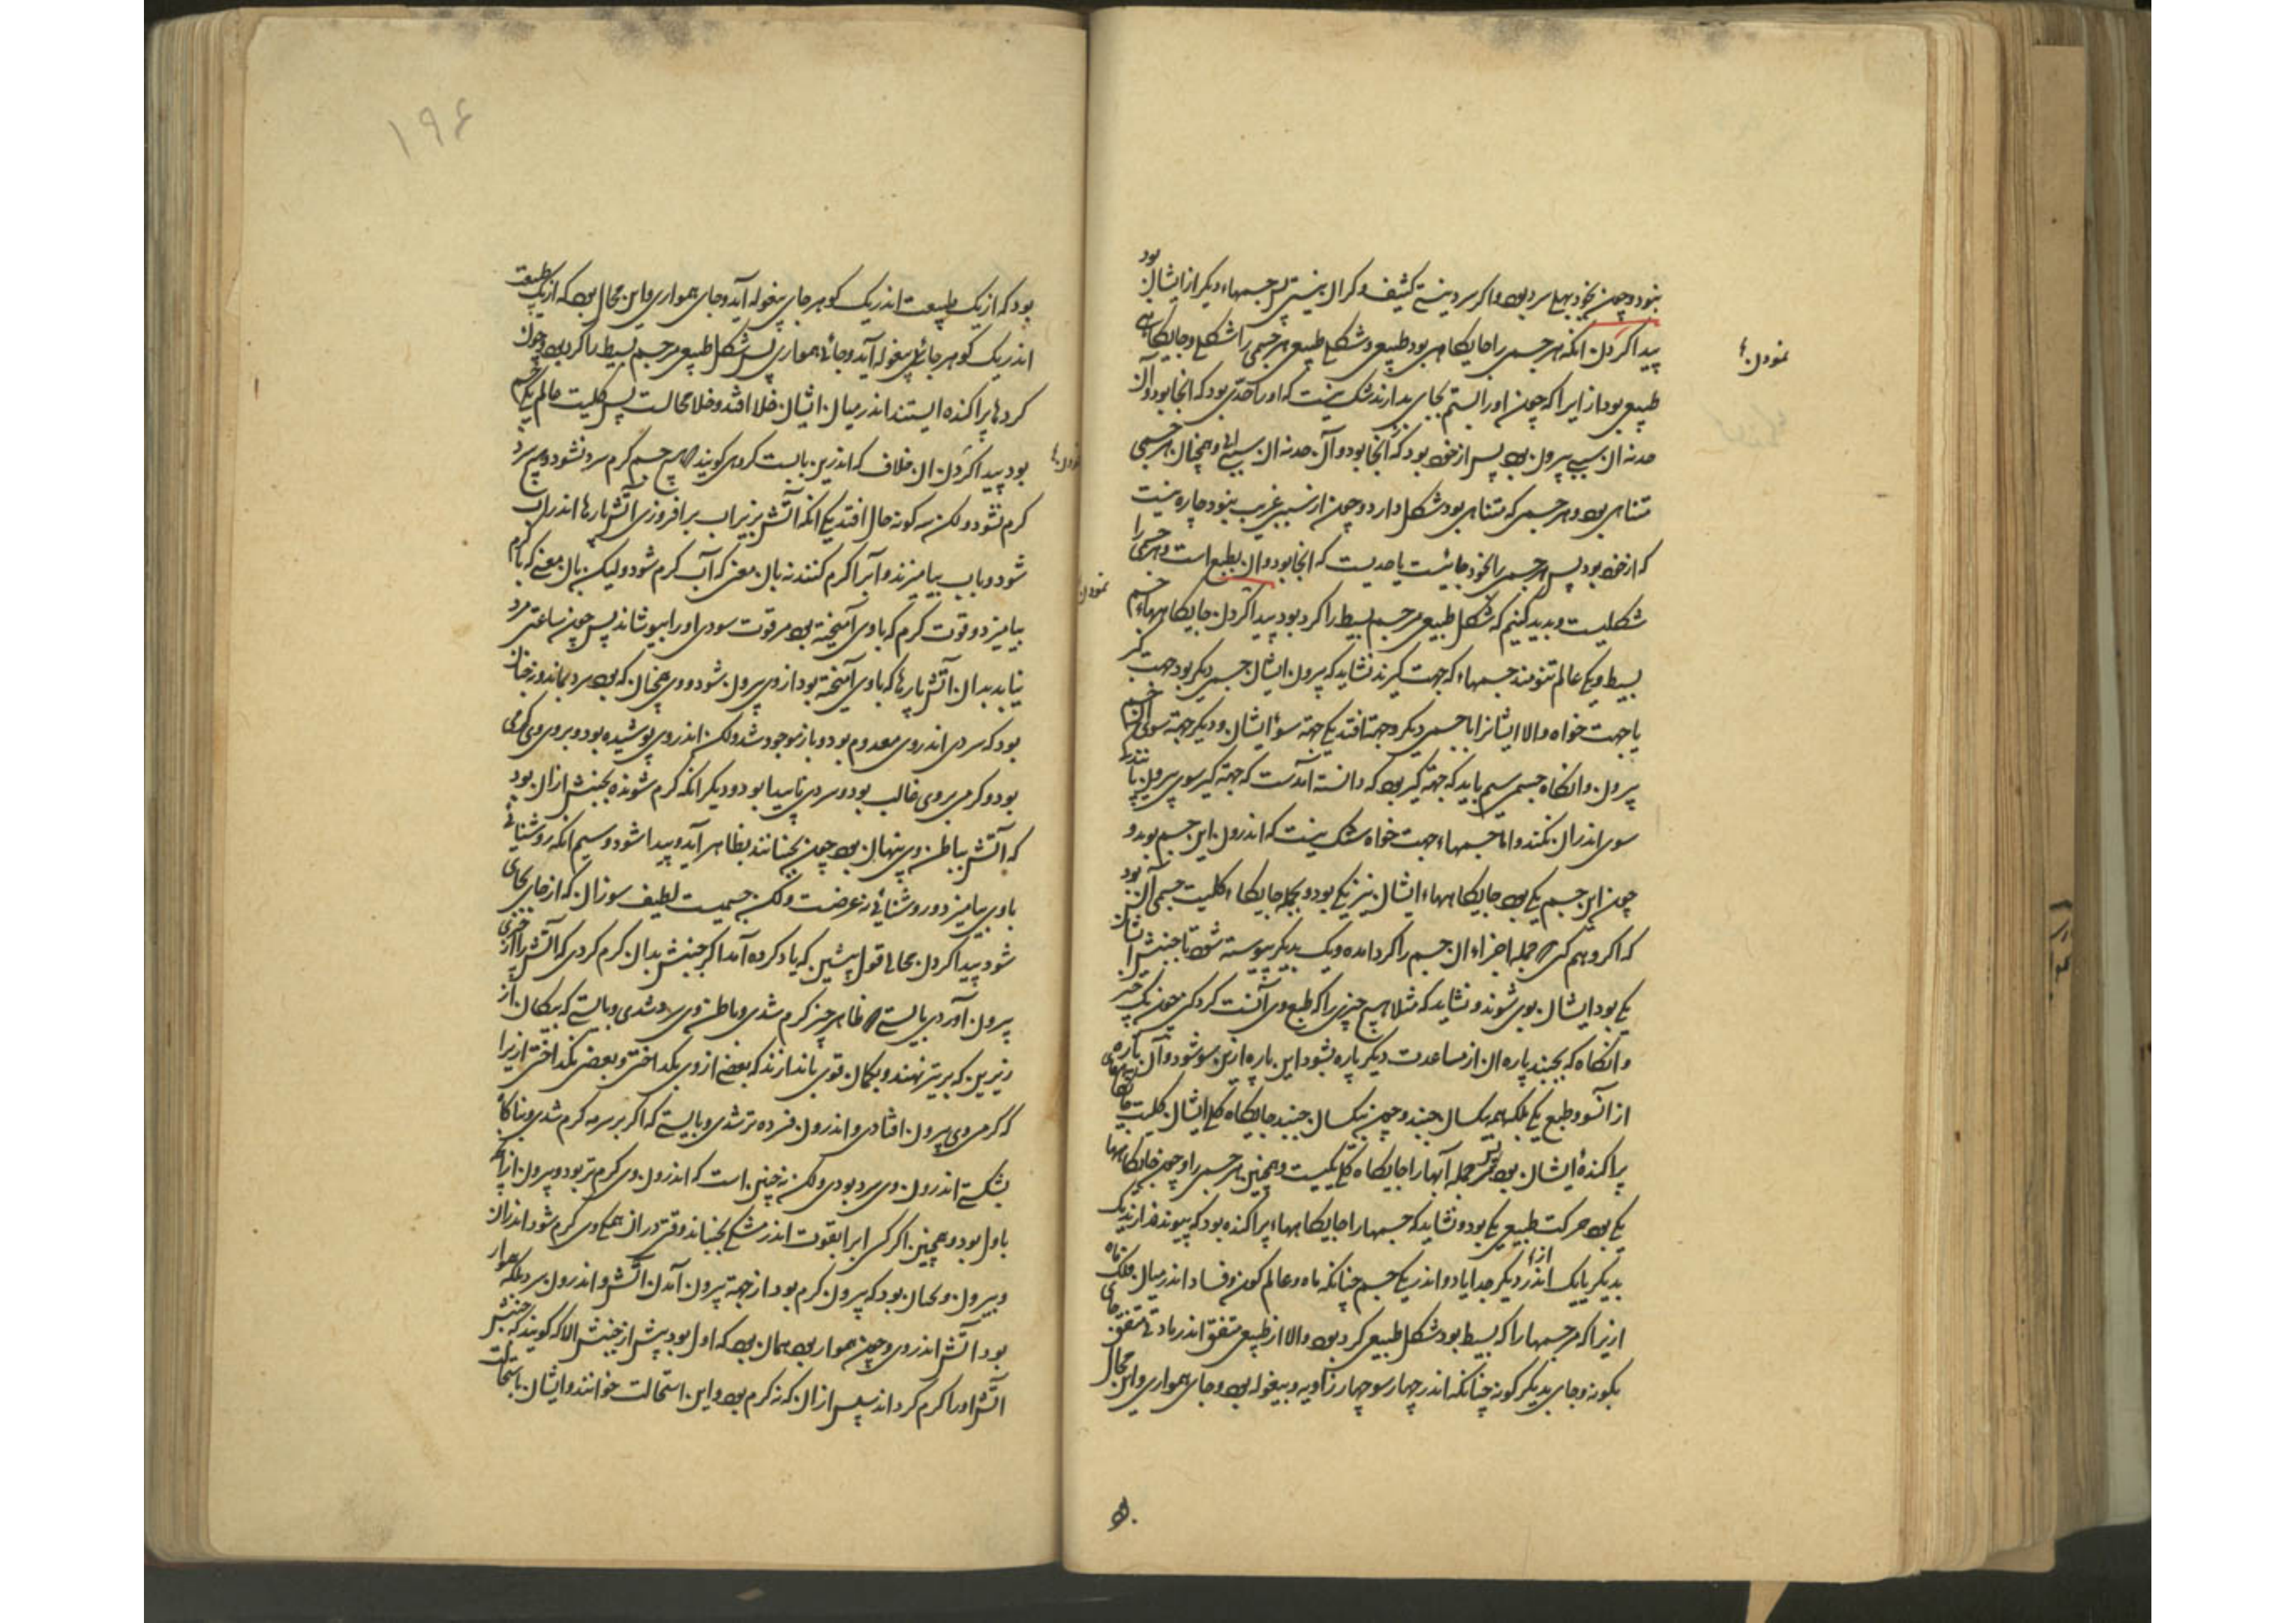 نبود و چون بخود بهلی سرد بود و اگر سردی نیستی کثیف و گران نیستی پس جسمهاء دیگر از ایشان بود
پیدا کردن آنکه هر جسمی را جایگاهی بود طبیعی و شکلی طبیعی هر جسمی را شکلی و جایگاهی
نمودن
طبیعی بود ازیرا که چون او را بستم بجای بدارند شک نیست که او را حدی بود که آنجا بود و آن
حد نه از سببی بیرون بود پس از خود بود که آنجا بود و آن حد نه از سببی و همچنان هر جسمی
متناهی بود و هر جسمی که متناهی بود شکل دارد و چون از سببی غریب نبود چاره نیست
که از خود بود پس هر جسمی را بخود جائیست یا حدیست که آنجا بود و آن بطبع است و هر جسمی را
شکلیست و پدید کنیم که شکل طبیعی مر جسم بسیط را گرد بود پیدا کردن جایگاههاء جسم
نمودن
بسیط و یکی عالم تنومند جسمهاء که جهت گیرند نشاید که بیرون ایشان جسمی دیگر بود جهت گیر
یا جهت خواه والا ایشانرا با جسمی دیگر دو جهت افتد یکی جهة سوی ایشان و دیگر جهة سوی
بیرون و آنگاه جسمی سیم باید که جهة گیر بود که دانسته آمدست که جهة گیر سوی بیرون
سوی اندران نکنند و اما جسمهاء جهت خواه شک نیست که اندرون این جسم بوند و
چون این جسم یکی بود جایگاههاء ایشان نیز یکی بود و بجمله جایگاه کلیت جسمی آن بود
که اگر وهم کنی جمله اجزاء آن جسم را گرد آمده و یک بدیگر پیوسته شود تا جنبش ایشان
یکی بود ایشان بوی شوند و نشاید که مثلا هیچ چیزی را که طبع وی آنست کرد که چون یک چیز
و آنگاه که بجنبد پاره از مساعدت دیگر پاره نشود این پاره ازین سو شود و آن پاره
از آنسو و طبع یکی بلکه همه یکسان جنبند و چون یکسان جنبند جایگاه کل ایشان کلیت جایگاههای
پراکندۀ ایشان بود پس جمله آبها را جایگاه کلی یکیست و همچنین هر جسمی را و چون جایگاهها
یکی بود حرکت طبیعی یکی بود و نشاید که جسمها را جایگاههاء پراکنده بود که پیوند فراز یک
بدیگر یا یک اندر دیگر جدا یاد و اندر یکی جسم چنانکه ماه و عالم کون و فساد اندر میان فلک ماه
ازیرا که مر جسمها را که بسیط بود شکل طبیعی گرد بود والا از طبیعی متفق اندر مادتی متفق جای
بگونه و جای بدیگر گونه چنانکه اندر چهار سو چهار زاویه و بیغوله بود و جای همواری و این محال
بود که از یک طبیعت اندر یک گوهر جای بیغوله آید و جای همواری و این محال بود که از یک طبیعت
اندر یک گوهر جائی بیغوله آید و جائی همواری پس شکل طبیعی مر جسم بسیط را گرد بود و چون
گردها پراکنده ایستند اندر میان ایشان خلا افتد و خلا محالست پس کلیت عالم یکی جسم
بود پیدا کردن آن خلاف که اندرین بابست گروهی گویند هیچ جسم گرم سرد نشود و هیچ سرد
نمودن
گرم نشود ولکن سه گونه حال افتد یکی آنکه آتش بزیر آب برافروزی آتش پارها اندر آب
شود و باب بیامیزند و آبرا گرم کنند نه بان معنی که آب گرم شود ولیکن بان معنی که با گرم
بیامیزد و قوت گرم که باوی آمیخته بود مر قوت سردی او را بپوشاند پس چون ساعتی برد
نیابد بدان آتش پارها که باوی آمیخته بود از وی بیرون شود و وی همچنان که بود سرد بماند و نه چنان
بود که سردی اندر وی معدوم بود و باز موجود شد ولکن اندر وی پوشیده بود و بروی وی گرمی
بود و گرمی بروی غالب بود و سردی ناپیدا بود و دیگر آنکه گرم شونده بجنبش از آن بود
که آتش بباطن وی پنهان بود چون بجنبانند بظاهر آید و پیدا شود و سیم آنکه روشنائی
باوی بیامیزد و روشنائی نه عرضست ولکن جسمیست لطیف سوزان که از جای بجای
شود پیدا کردن محالی قول پیشین که یاد کرده آمد اگر جنبش بدان گرم کردی که آتش را از چیزی
بیرون آوردی بایستی ظاهر چیز گرم شدی و باطن وی سرد شدی و بایستی که پیکان از
زیرین که بر تیر نهند و بکمان قوی باندازند که بعضی از وی بگداختی و بعضی نگداختی ازیرا
که گرمی وی بیرون افتادی و اندرون فسرده تر شدی و بایستی که اگر بر سرمه گرم شدی و بناگاه
بشکستی اندرون وی سرد بودی ولکن نه چنین است که اندرون وی گرم تر بود و بیرون از آنکه
باول بود و همچنین اگر کسی آبرا بقوت اندر مشکی بجنباند وقتی دراز همگی وی گرم شود اندرون
و بیرون و محال بود که بیرون گرم بود از جهة بیرون آمدن آتش و اندرون سرد بلکه هموار
بود آتش اندر وی و چون هموار بود همان بود که اول بود پیش از جنبش الا که گویند که جنبش
آتش او را گرم گرداند سپس از آن که نه گرم بود و این استحالت خوانند و ایشان باستحالت
۱۹۶